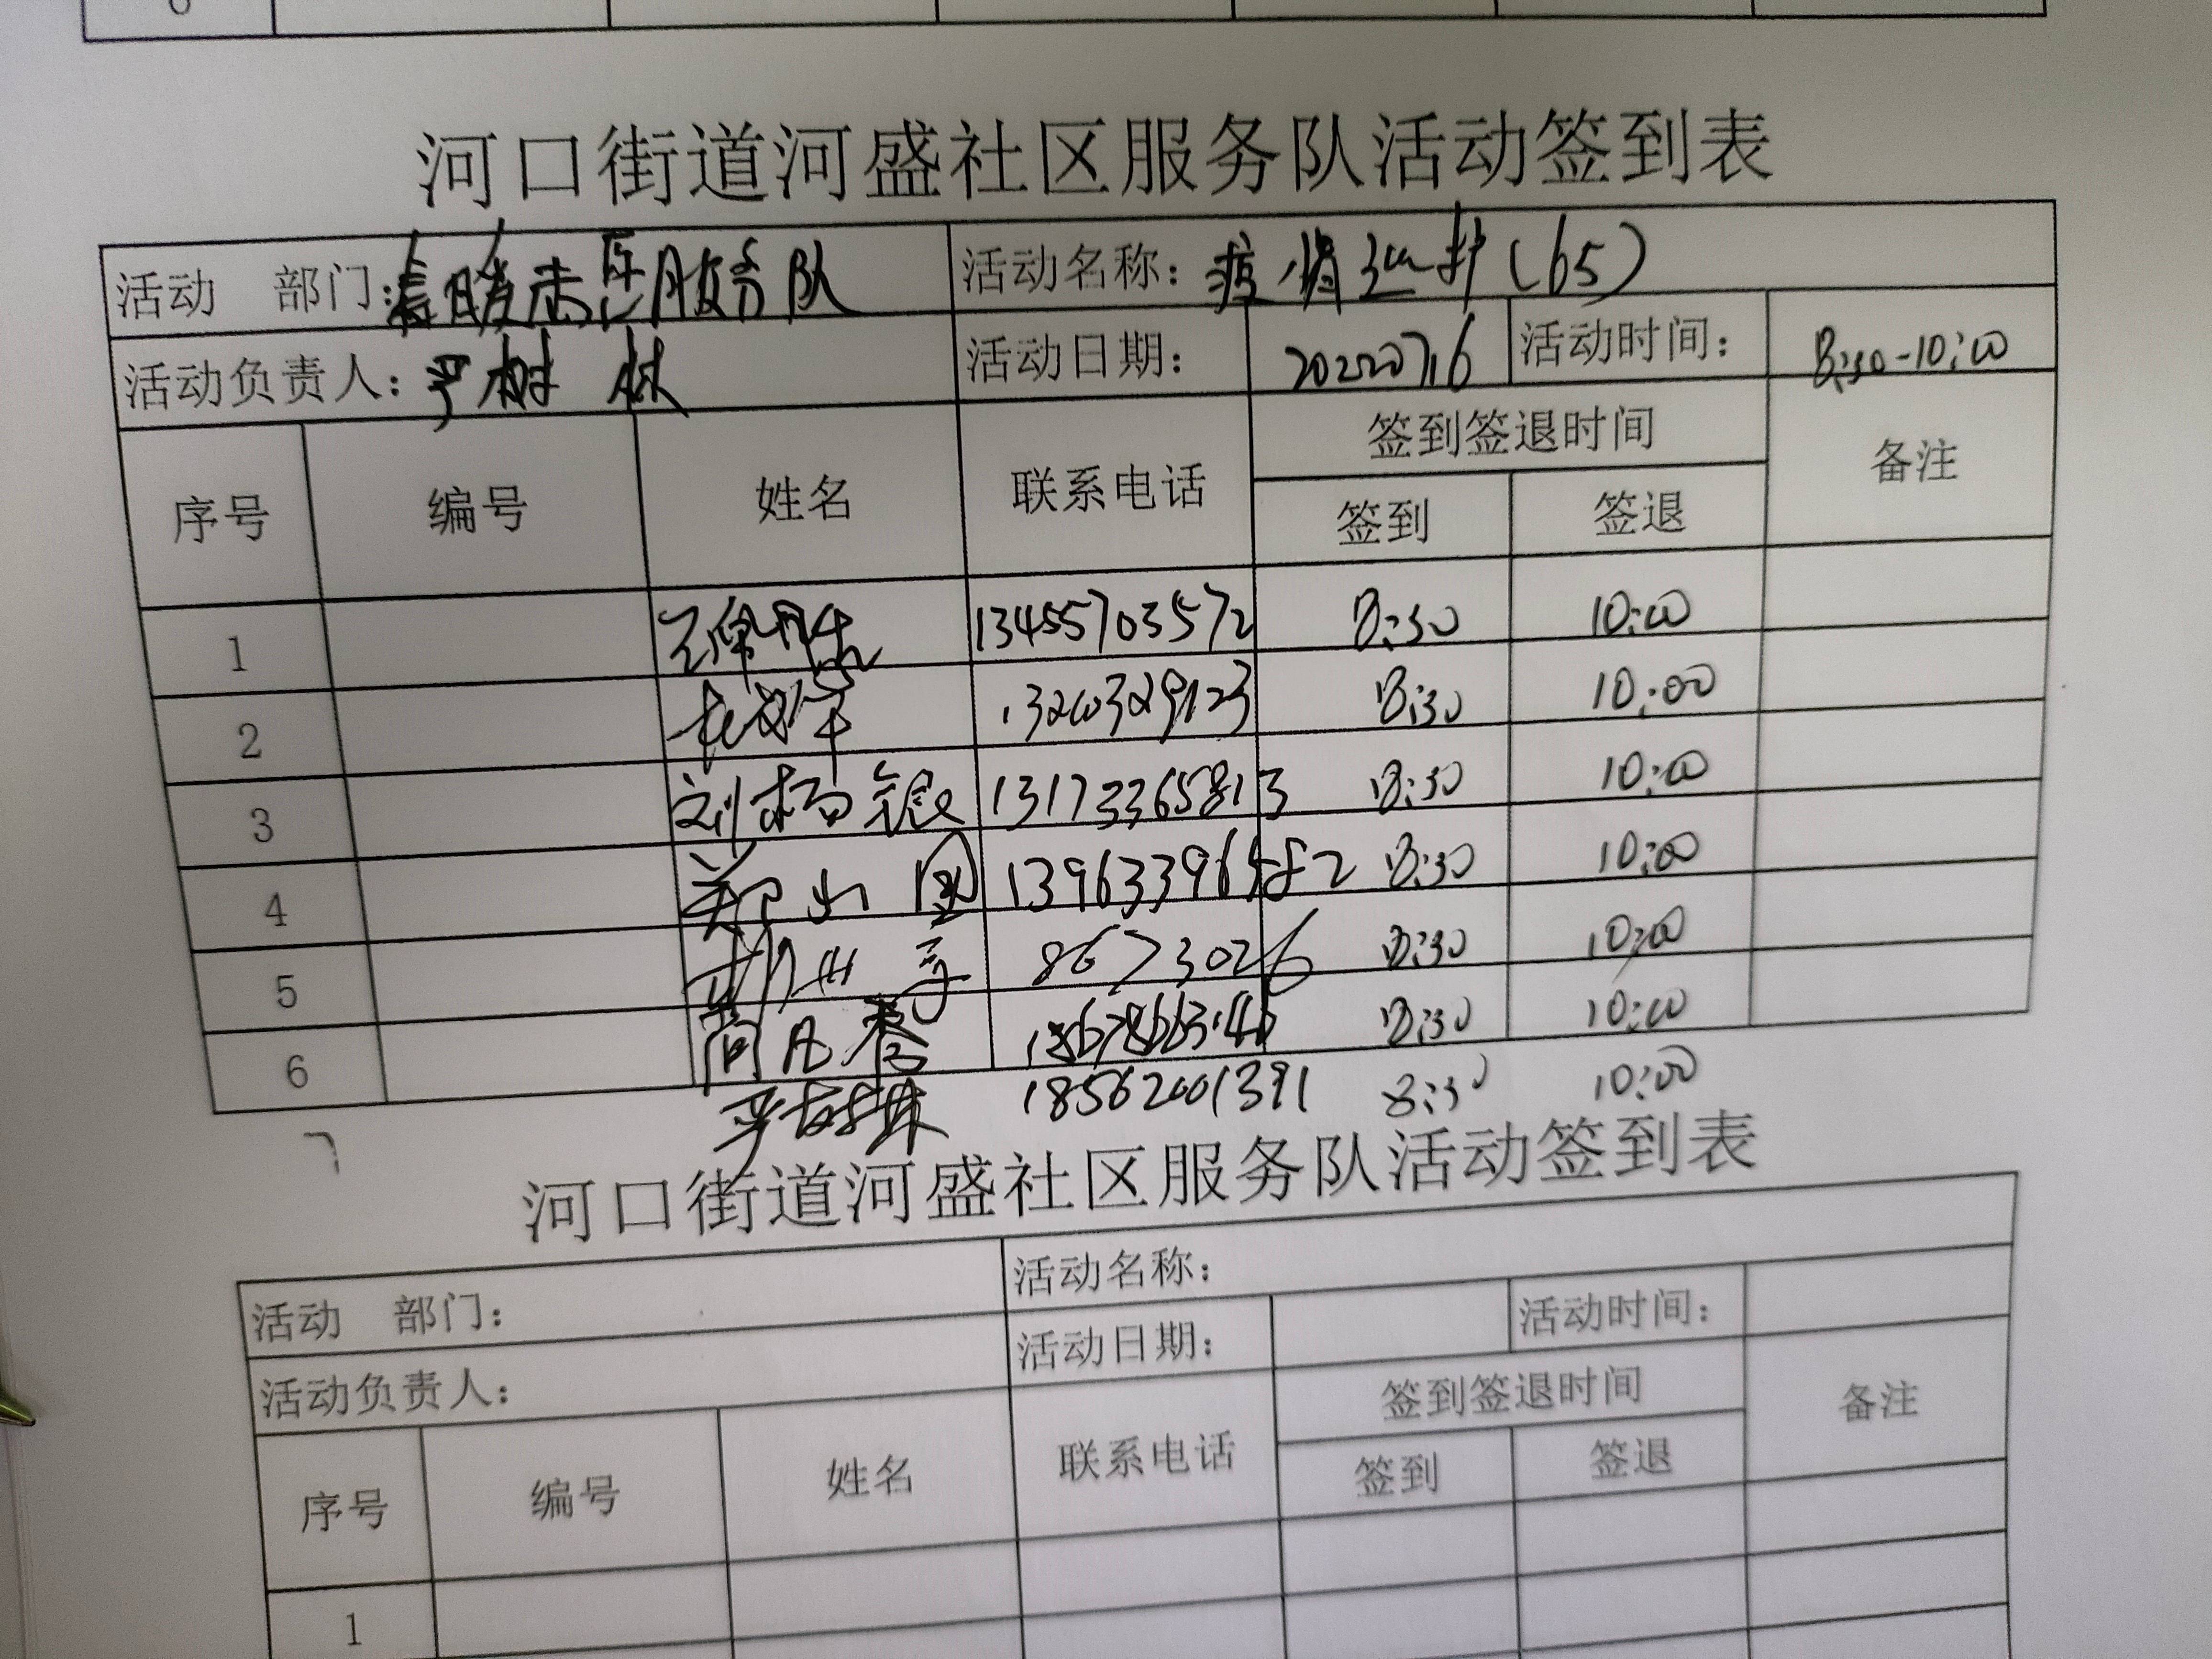 6
河口街道河盛社区服务队活动签到表
活动 部门: 服务队 活动名称: 疫情 (65)
活动负责人: 严树林 活动日期: 20220716 活动时间: 8:30-10:00
序号 编号 姓名 联系电话 签到签退时间 备注
签到 签退
1 13455703572 8:30 10:00
2 8:30 10:00
3 刘杨银 13173365813 8:30 10:00
4 郑 国 8:30 10:00
5 8673026 8:30 10:00
6 8:30 10:00
7 严树林 18562001391 8:30 10:00
河口街道河盛社区服务队活动签到表
活动 部门: 活动名称:
活动负责人: 活动日期: 活动时间:
序号 编号 姓名 联系电话 签到签退时间 备注
签到 签退
1